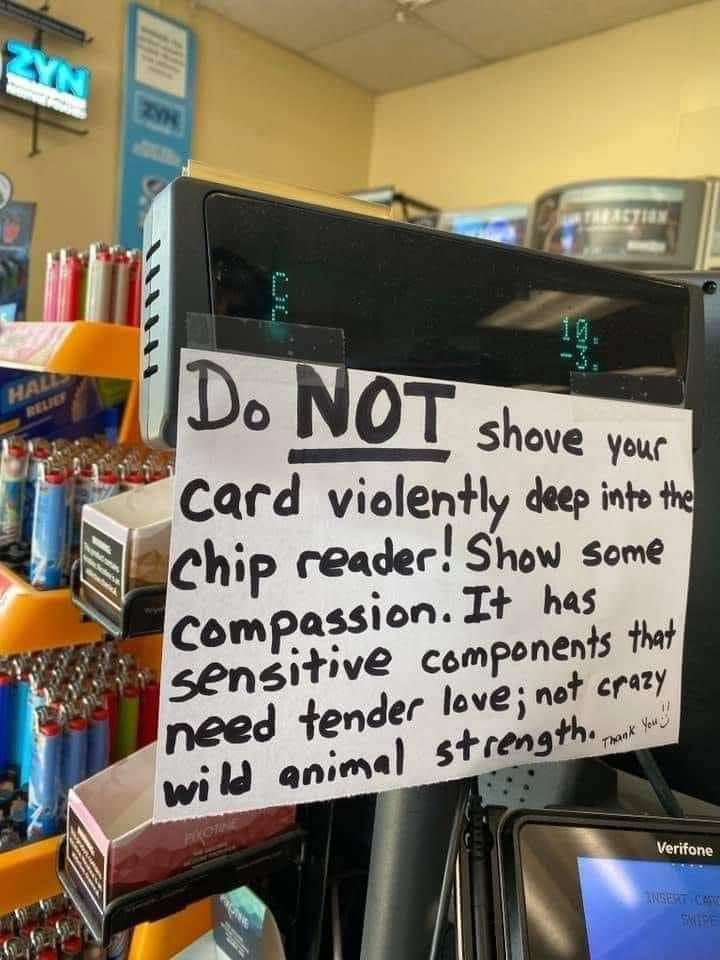 ZYN
ZYN
HALLS
RELIEF
10.
-3.
Do NOT shove your
card violently deep into the
chip reader! Show some
compassion. It has
sensitive components that
need tender love; not crazy
wild animal strength. Thank You :)
WARNING:
Verifone
INSERT CARD
SWIPE